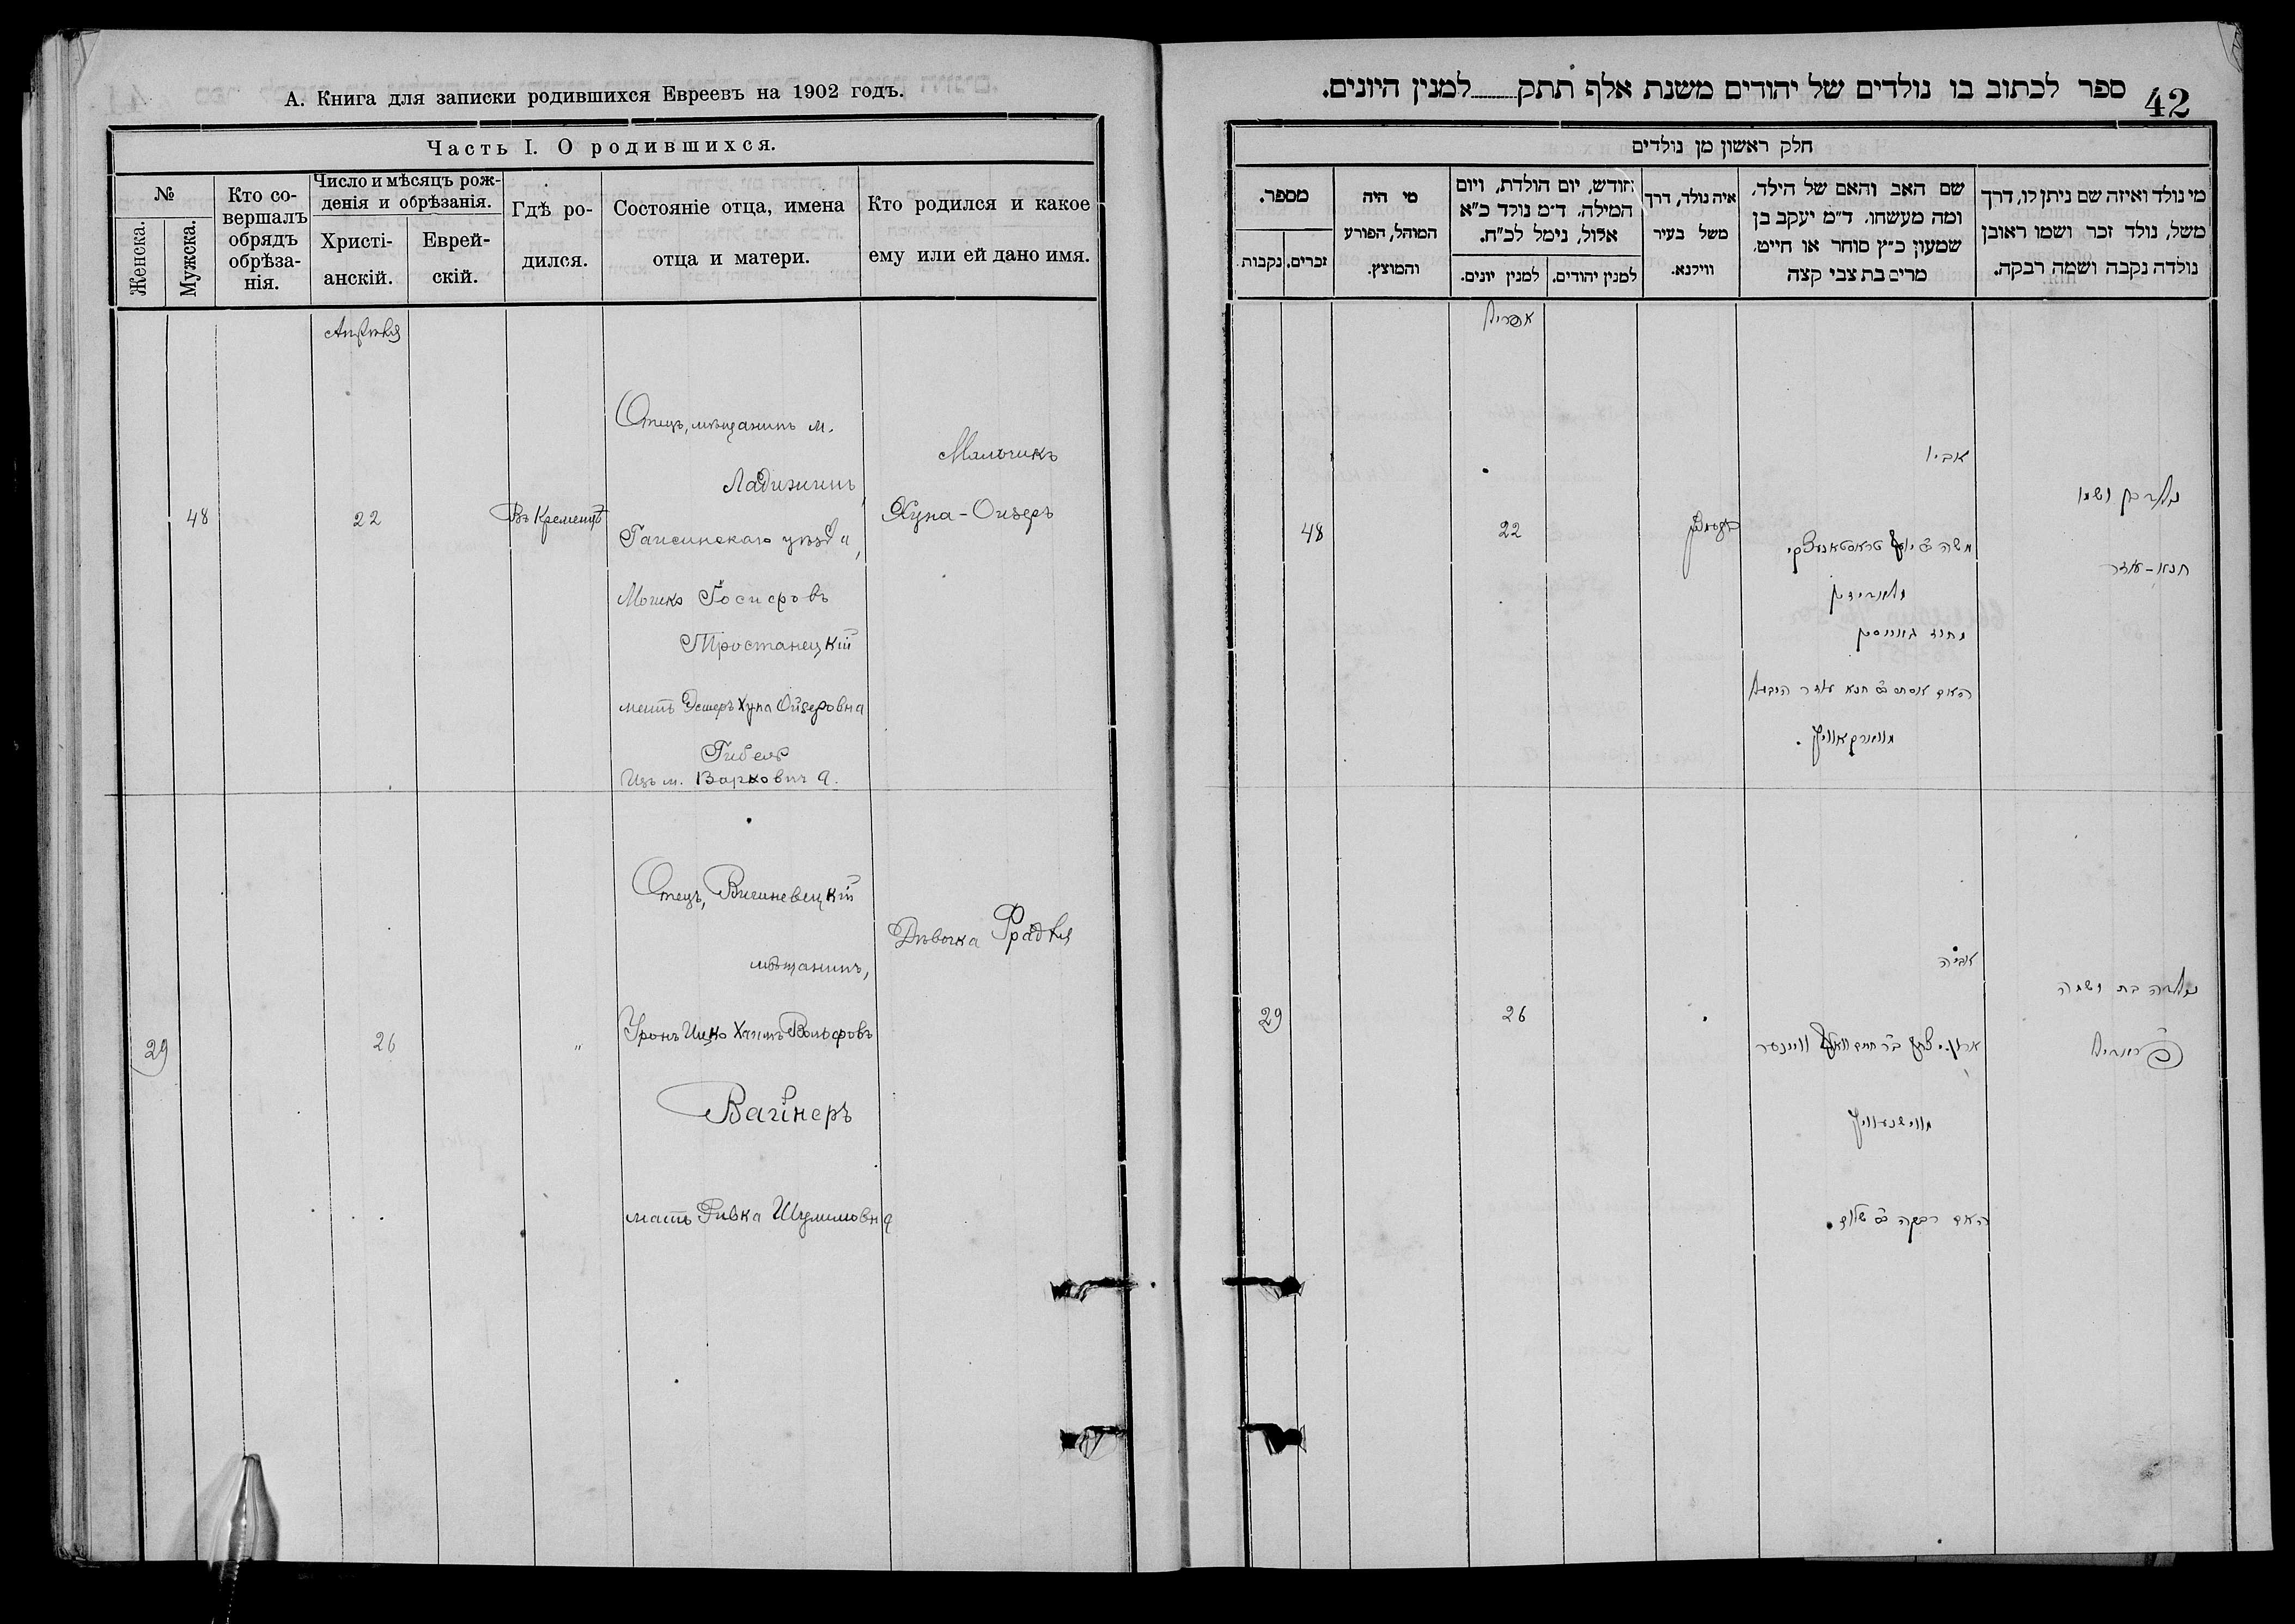 А. Книга для записки родившихся Евреевъ на 1902 годъ.
Часть I. О родившихся.
№
Женска.
Мужска.
Кто со-
вершалъ
обрядъ
обрѣза-
нія.
Число и мѣсяцъ рож-
денія и обрѣзанія.
Христі-
анскій.
Еврей-
скій.
Гдѣ ро-
дился.
Состояніе отца, имена
отца и матери.
Кто родился и какое
ему или ей дано имя.
Апрѣля
48
22
Въ Кременцѣ
Отецъ, мѣщанинъ м.
Ладыжинъ,
Гайсинскаго уѣзда,
Мошко Іосифовъ
Тростанецкій
мать Эстеръ Хуна Ойзеровна
Гибель
Изъ м. Варковичъ.
Мальчикъ
Хуна-Ойзеръ
29
26
"
Отецъ, Вишневецкій
мѣщанинъ,
Хаимъ Вольфовъ
Вайнеръ
мать Ривка Шулимовна
Дѣвочка Фрадля
42
ספר לכתוב בו נולדים של יהודים משנת אלף תתק למנין היונים.
חלק ראשון מן נולדים
מי נולד ואיזה שם ניתן לו, דרך
משל, נולד זכר ושמו ראובן
נולדה נקבה ושמה רבקה.
שם האב והאם של הילד,
ומה מעשהו. ד״מ יעקב בן
שמעון כ״ץ סוחר או חייט,
מרים בת צבי קצה
איה נולד, דרך
משל בעיר
ווילנא.
חודש, יום הולדת, ויום
המילה. ד״מ נולד כ״א
אלול, נימל לכ״ח.
למנין יהודים.
למנין יונים.
מי היה
המוהל, הפורע
והמוצץ.
מספר.
זכרים.
נקבות.
אפריל
48
22
אביו
משה יוסף טראסטאנעצקי
האם אסתר חנא עוזר היבעל
נולד בן ושמו
חנא-עוזר
29
26
אביה
האם רבקה שלום.
נולדה בת ושמה